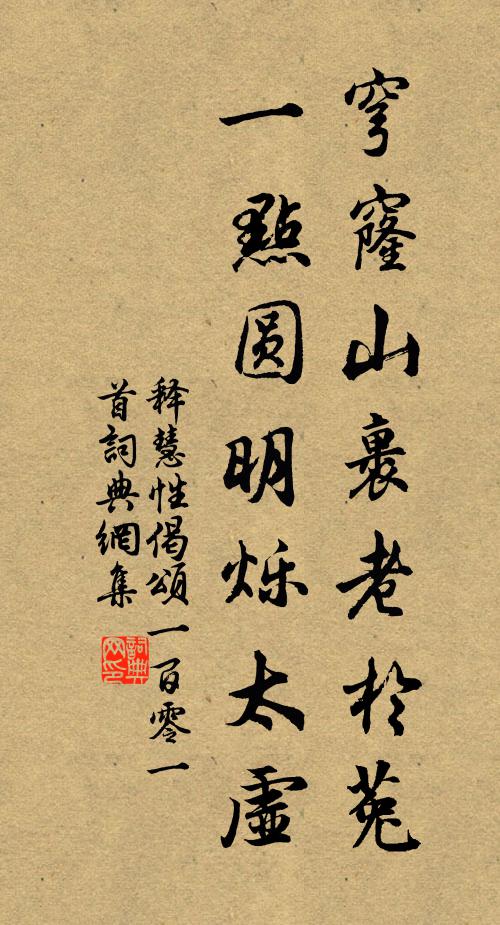 穹窿山裹老於菟
一點圆明烁太虛
释慧性偈頌一百零一
首詞典網集
詞典网印